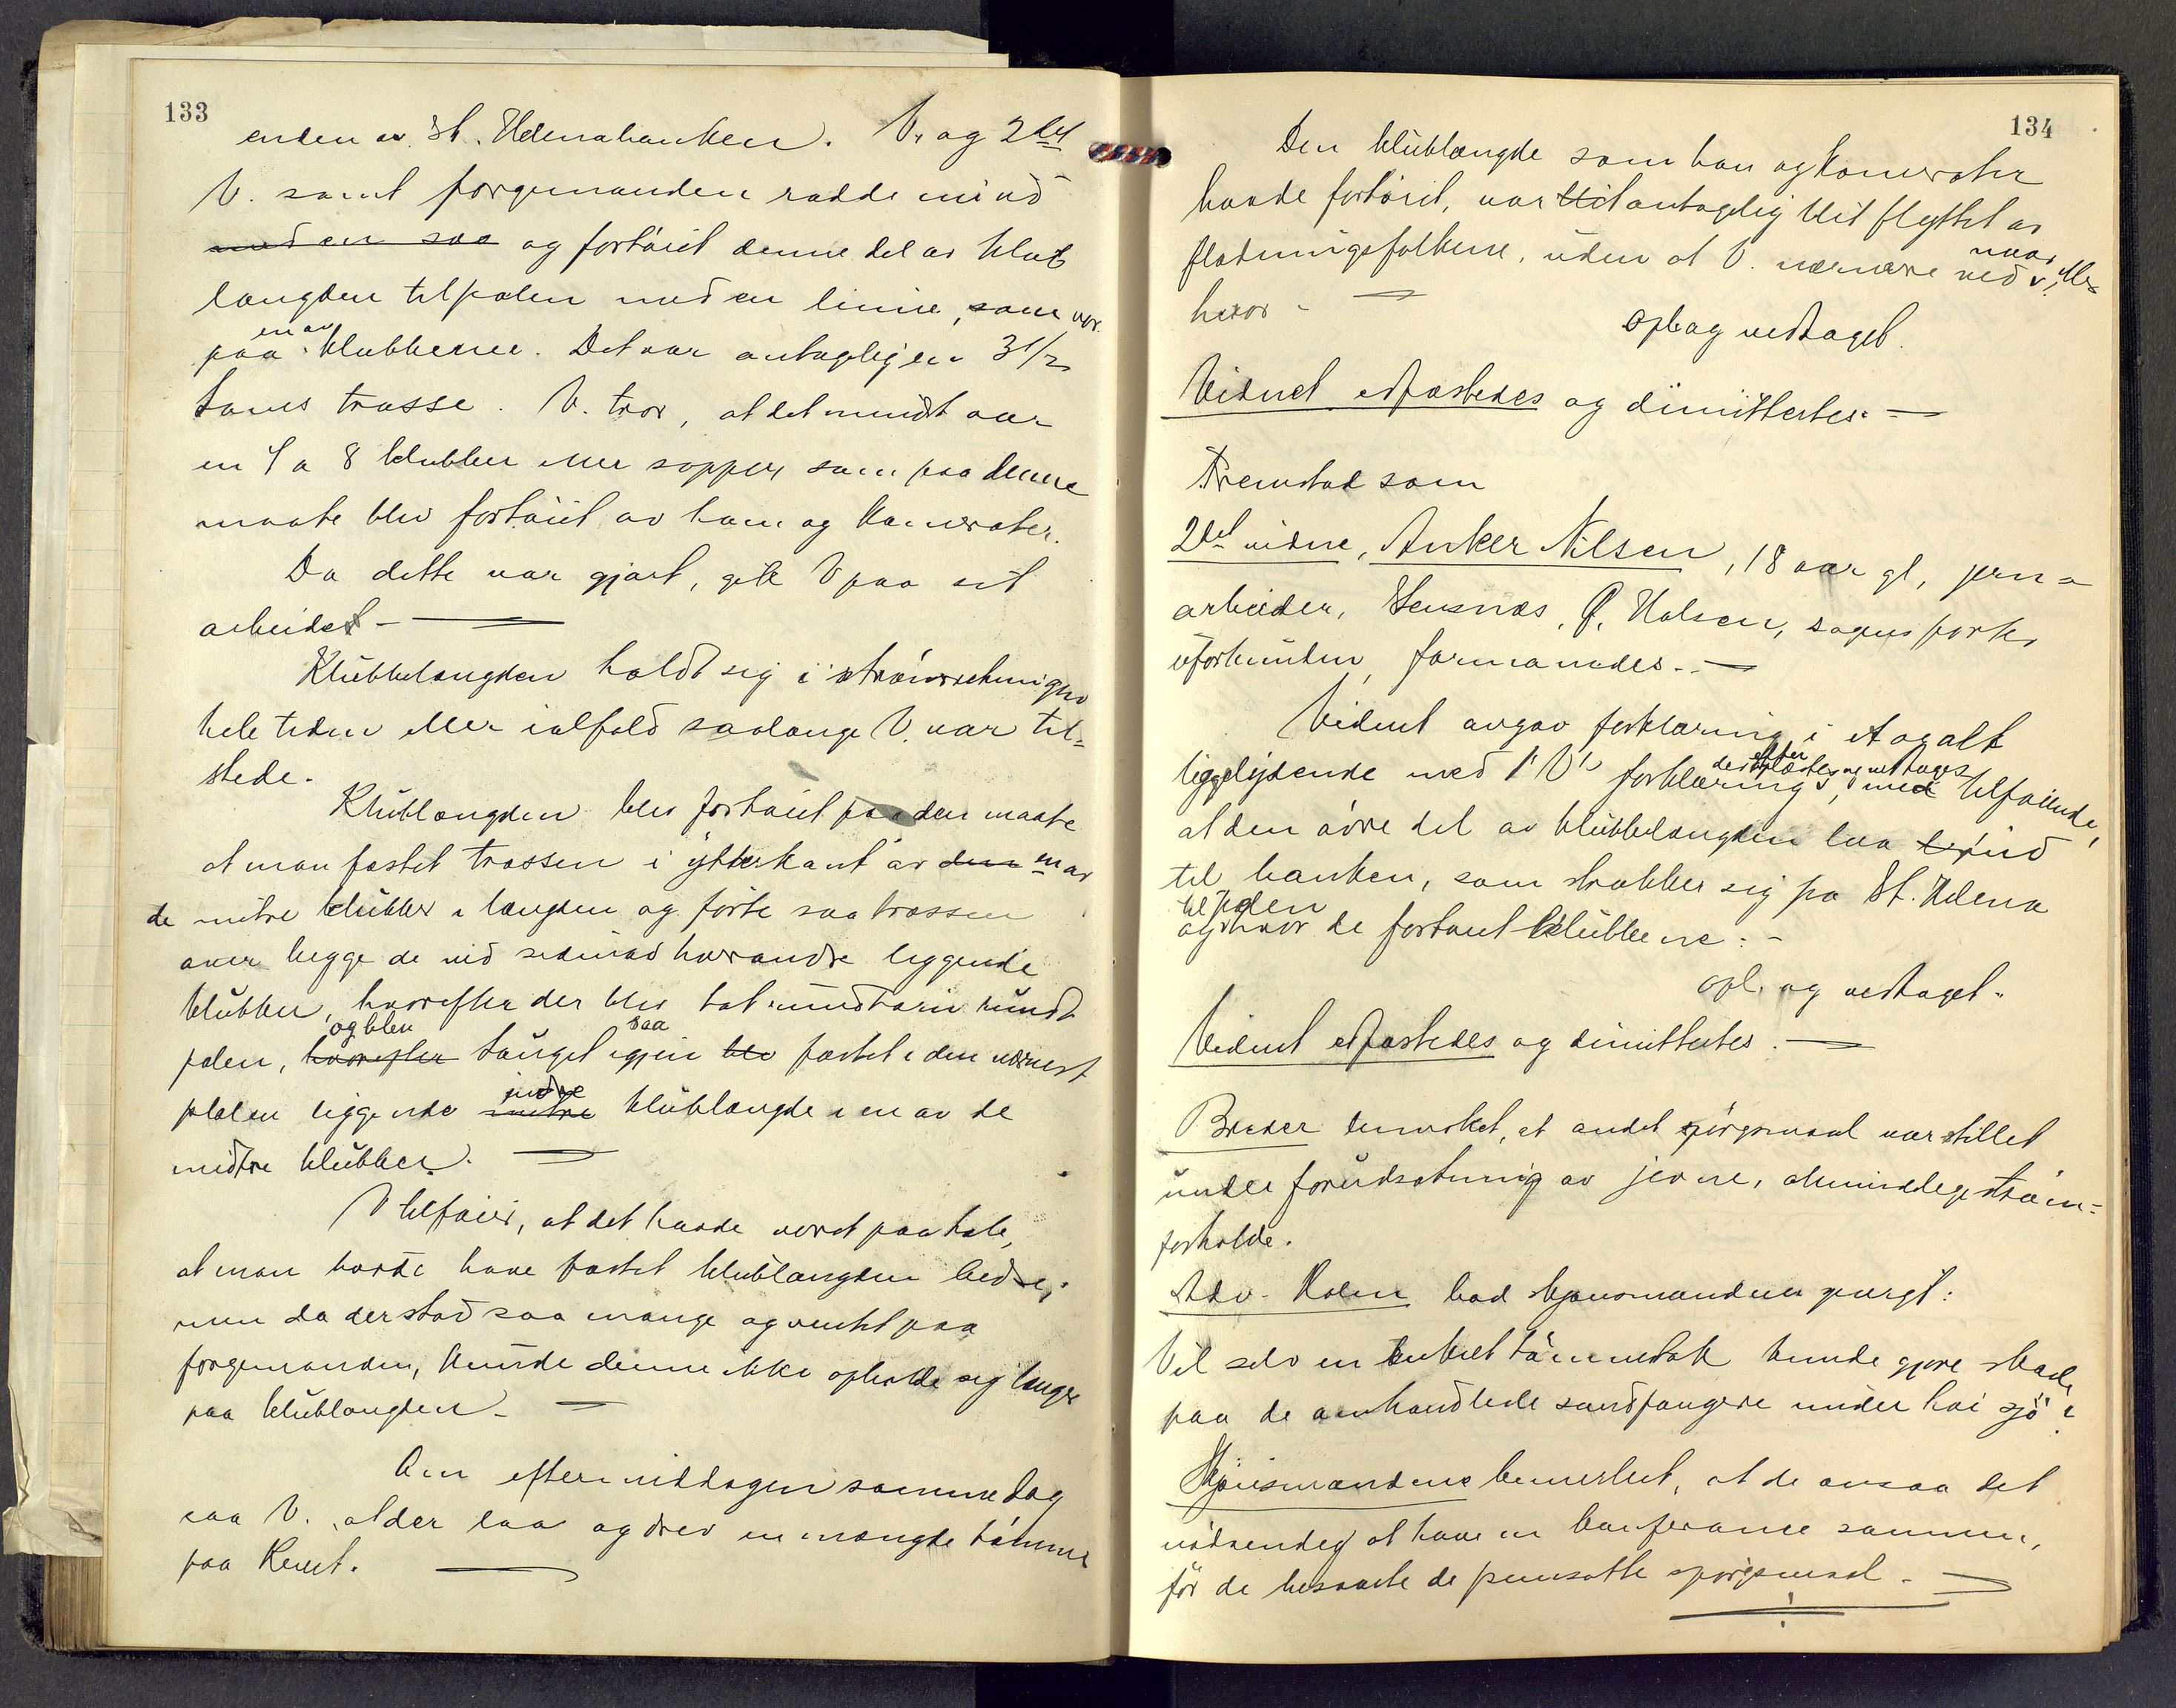 133
enden av St. Helenabanken. V. og 2det
V. samt forgemanden rodde mind
med en saa og fortöiet denne del av klub
længden til pælen med en linie, som var
en av
paa klubberne. Det var antagelig en 3 1/2
toms trosse. V. tror, at det mindst var
en 7 a 8 klubber eller sopper som paa denne
maate blev fortöiet av ham og kamerater.
Da dette var gjort, gik V paa sit
arbeidet -
Klübbelængden holdt sig i strömretningen
hele tiden eller ialfald saalænge V. var til-
stede.
Klüblængden blev fortöiet paa den maate
at man fæstet trossen i ytterkant av den en av
de mitre klübber i længden og förte saa trossen
over begge de ved sidenav hverandre liggende
klübber, hvorefter der blev tat rundtörn rundt
og blev saa
pælen, hvorefter tauget igjen blev fæstet i den nærmest
indre
pælen liggende mitre klüblængde i en av de
midtre klübber.
V tilföier, at det havde været paa tale,
at man burde have fæstet klüblængden bedre,
men da der stod saa mange og ventet paa
forgemanden, kunde denne ikke opholde sig længer
paa klüblængden -
Om eftermiddagen samme dag
saa V. at der laa og drev en mængde tömmer
paa Revet.
134
Den klüblængde som han og kamerater
havde fortöiet, var antagelig blit flyttet av
flötningsfolkene, uden at V. nærmere ved naar eller
hvor -
Opl og vedtaget.
Vidnet edfæstedes og dimittertes. -
Fremstod som
2det vidne, Anker Nilsen, 18 aar gl, jern-
arbeider, Sensnes, O. Halsen, sagens parter
uforbunden, formanedes. -
Vidnet avgav forklaring i et og alt
liggelydende med 1' V's forklaring, der oplæstes og vedtages med tilföiende,
at den övre del av klübbelængden laa ind
til banken, som strækker sig fra St. Helena
til pælen
og hvor de fortöiet klübbene. -
opl. og vedtaget.
Vidnet edfæstedes og dimittertes. -
Breder bemerket, at andet spörgsmaal var stillet
under forudsætning av jevne, almindelige ström-
forholde.
Adv. Holm bad skjönsmændene spurgt:
Vil selv en enkelt tömmerstok kunde gjöre skade
paa de omhandlede sandfangere under höi sjö?
Skjönsmændene bemerket, at de ansaa det
nödvendig at have en konferance sammen,
för de besvarte de fremsatte spörgsmaal. -